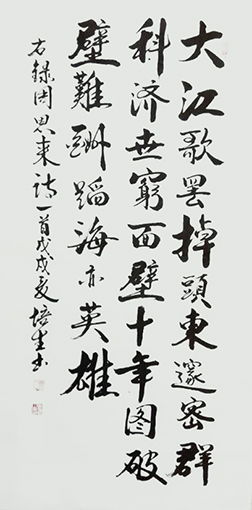 大江歌罢掉頭東邃密群
科济世窮面壁十年图破
壁難酬蹈海亦英雄
右録周恩来诗一首戊戌夏培生书